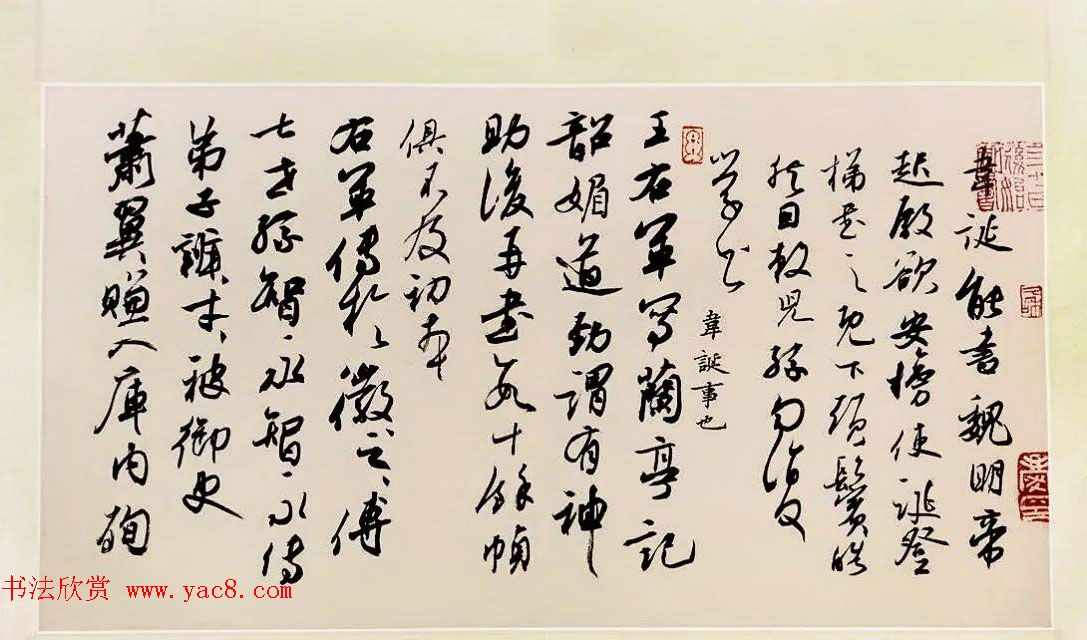 韋誕能書魏明帝
起殿欲安榜使誕登
梯書之既下頭鬢皓
然因敕兒孫勿復
學書
韋誕事也
王右軍寫蘭亭記
韶媚遒勁謂有神
助後再書數十餘幀
俱不及初本
右軍傳於徽之徽之傳
七世孫智永智永傳
弟子辯才辯才被御史
蕭翼賺入庫內殉
书法欣赏 www.yac8.com